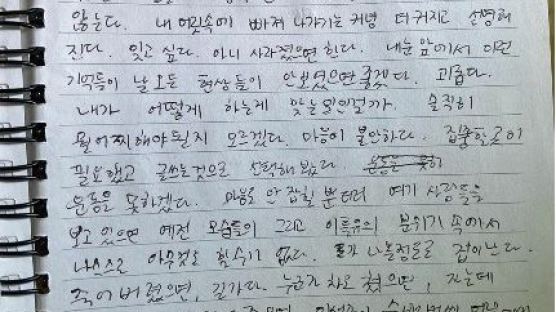 않는다. 내 머릿속에 빠져 나가기는 커녕 더 커지고 선명해
진다. 잊고 싶다. 아니 사라졌으면 한다. 내 눈 앞에서 이런
기억들이 날 모든 형상들이 안 보였으면 좋겠다. 괴롭다.
내가 어떻게 하는게 맞는일인걸까. 솔직히
뭘 어찌해야 될지 모르겠다. 마음이 불안하다. 집중할 곳이
필요했고 글쓰는것으로 선택해 봤다. 운동은 못히
운동을 못하겠다. 마음도 안 잡힐 뿐더러 여기 사람들을
보고 있으면 예전 모습들이 그리고 이특유의 분위기 속에서
나스스로 아무것도 할수가 없다. 나올정도로 겁이난다.
죽어 버렸으면, 길가다. 누군가 차로 쳤으면, 자는데